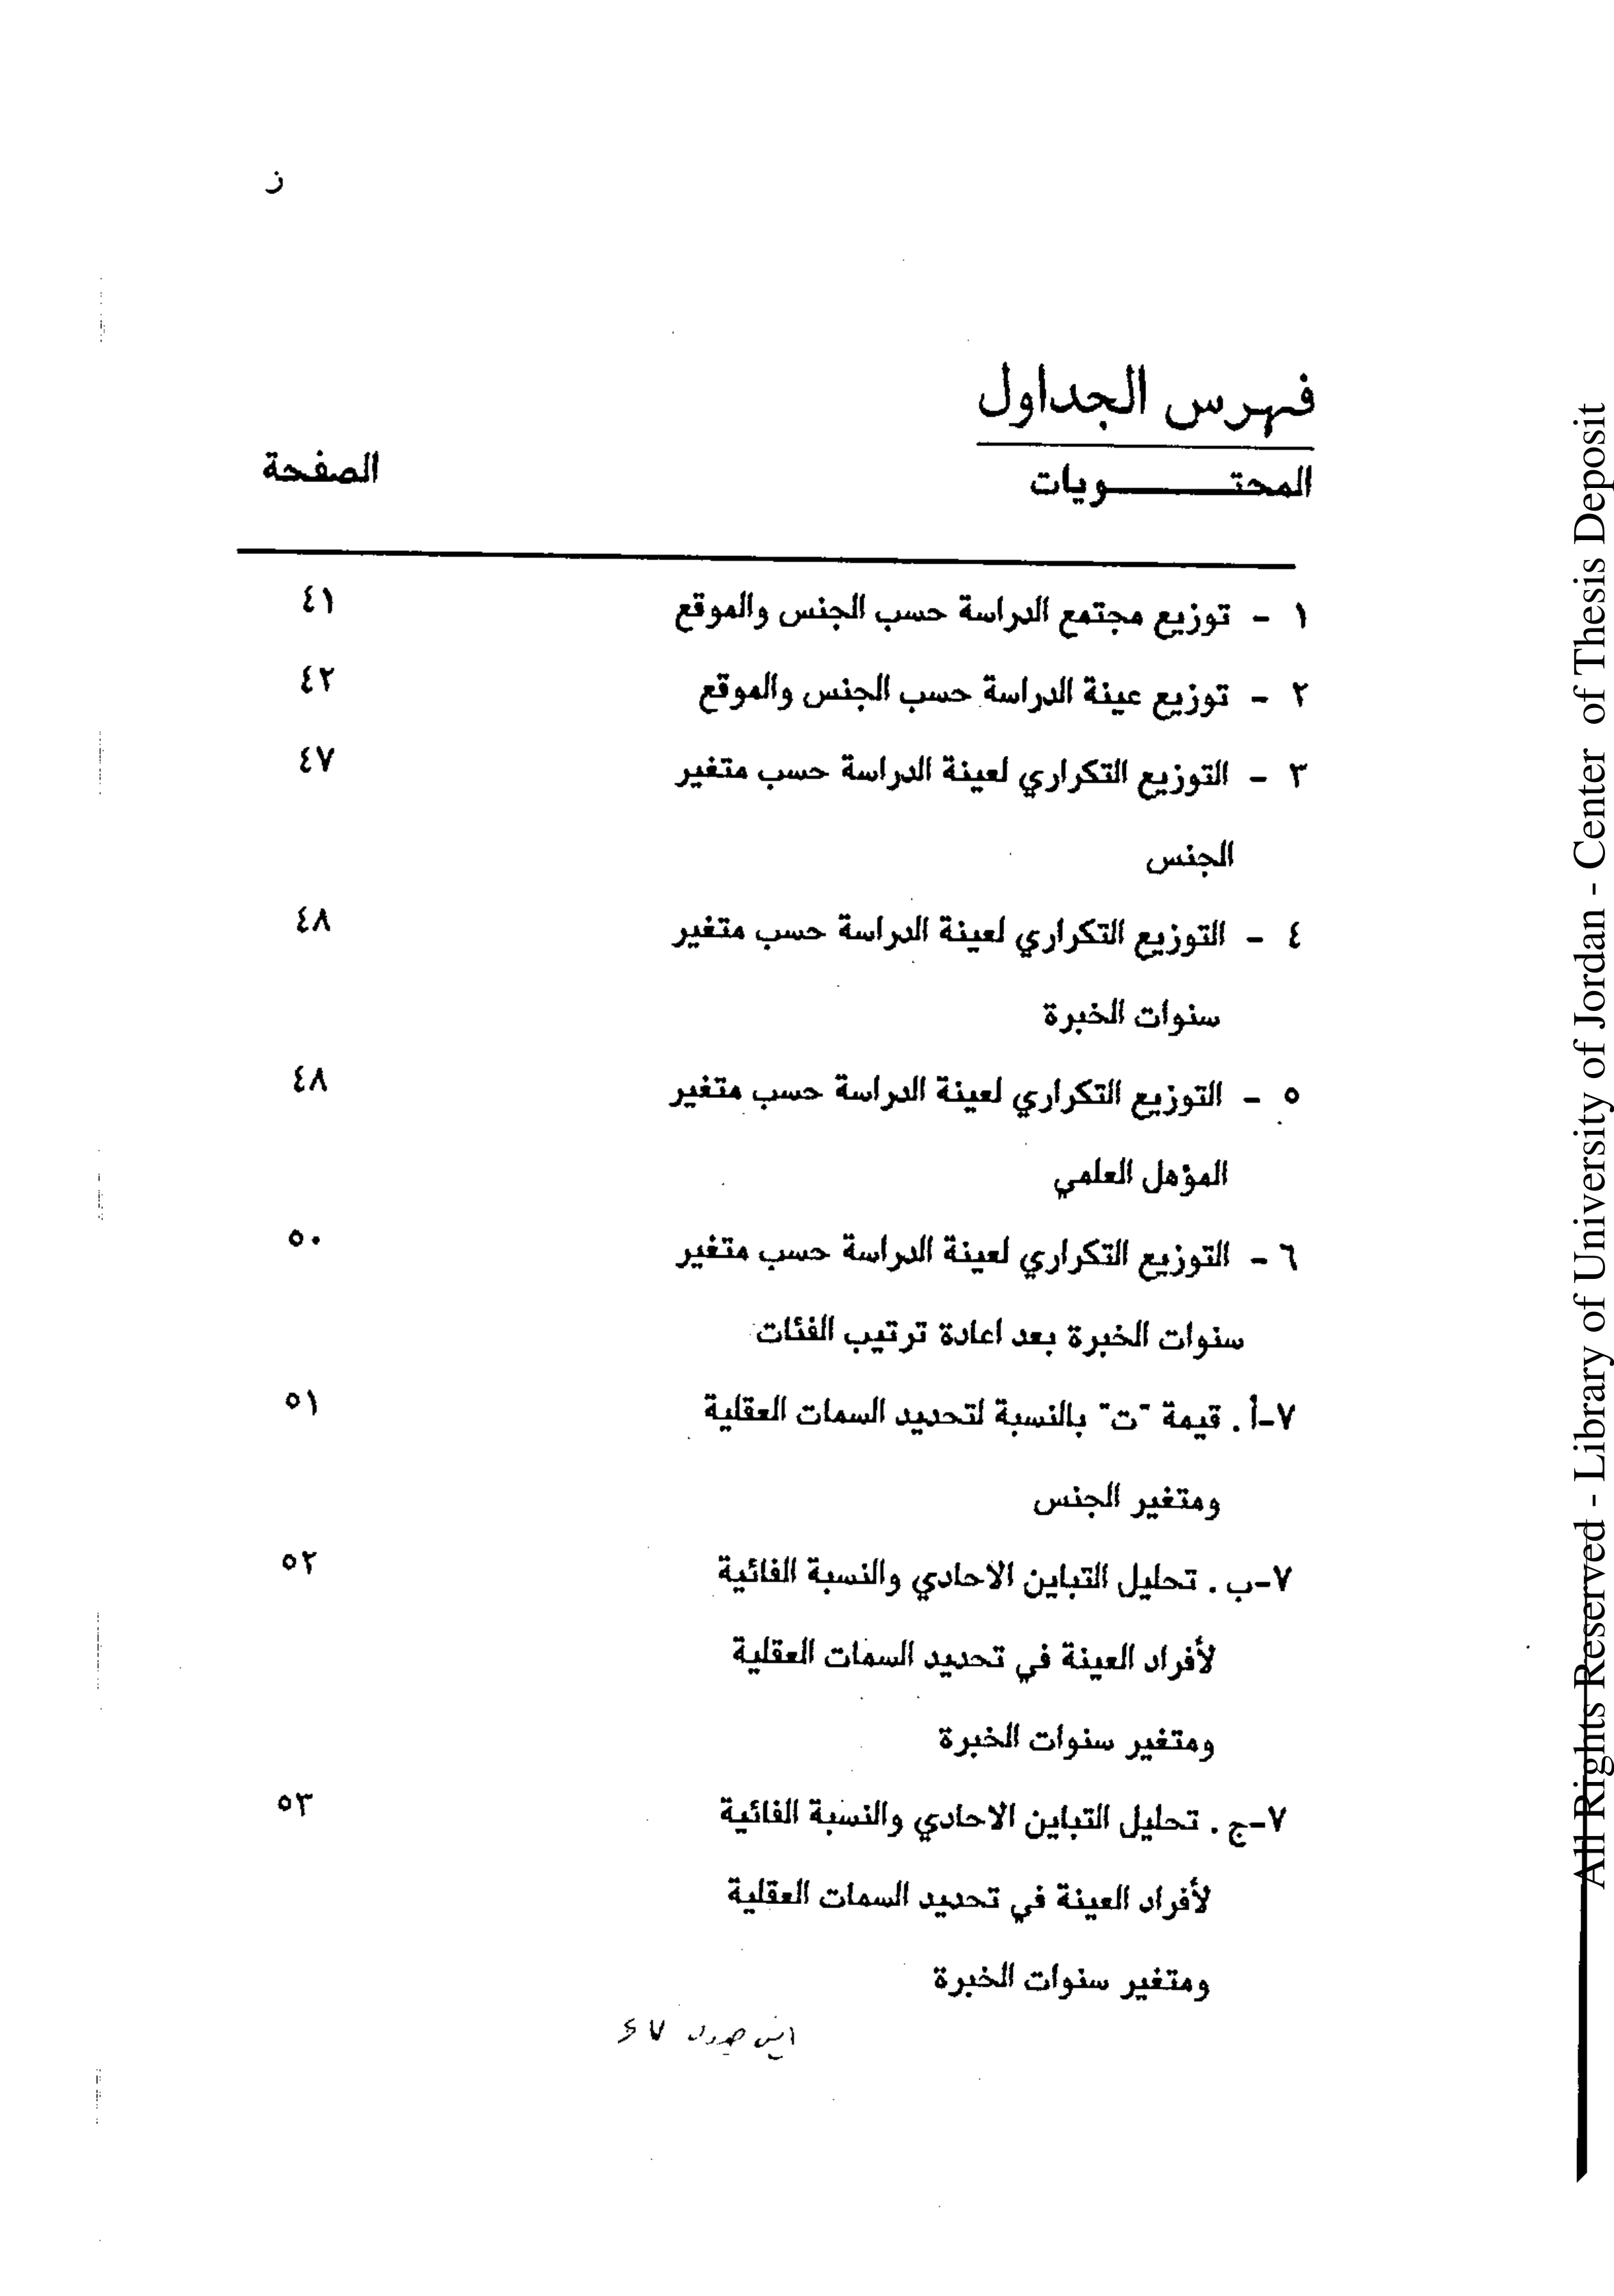 ز
فهرس الجداول
المحتـــــــويات الصفحة
١ - توزيع مجتمع الدراسة حسب الجنس والموقع ٤١
٢ - توزيع عينة الدراسة حسب الجنس والموقع ٤٢
٣ - التوزيع التكراري لعينة الدراسة حسب متغير ٤٧
الجنس
٤ - التوزيع التكراري لعينة الدراسة حسب متغير ٤٨
سنوات الخبرة
٥ - التوزيع التكراري لعينة الدراسة حسب متغير ٤٨
المؤهل العلمي
٦ - التوزيع التكراري لعينة الدراسة حسب متغير ٥٠
سنوات الخبرة بعد اعادة ترتيب الفئات
٧-أ . قيمة "ت" بالنسبة لتحديد السمات العقلية ٥١
ومتغير الجنس
٧-ب . تحليل التباين الاحادي والنسبة الفائية ٥٢
لأفراد العينة في تحديد السمات العقلية
ومتغير سنوات الخبرة
٧-ج . تحليل التباين الاحادي والنسبة الفائية ٥٣
لأفراد العينة في تحديد السمات العقلية
ومتغير سنوات الخبرة
اين جدول ٧
All Rights Reserved - Library of University of Jordan - Center of Thesis Deposit